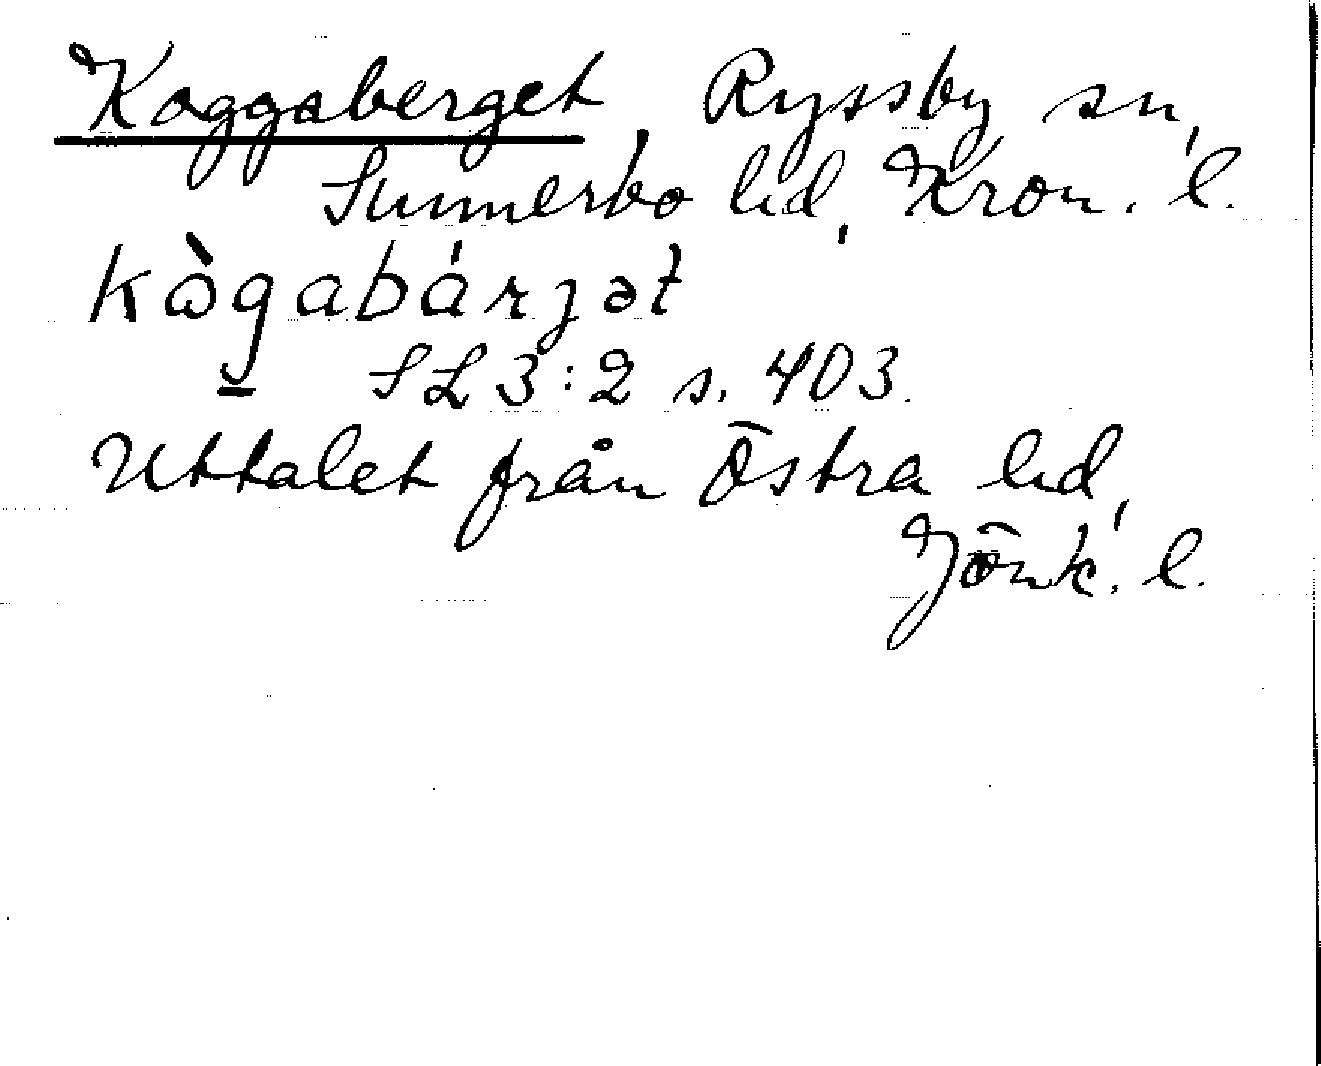 Koggaberget, Ryssby sn,
Sunnerbo hd, Kron. l.
kògabárjət
SL 3:2 s. 403.
Uttalet från Östra hd,
Jönk. l.